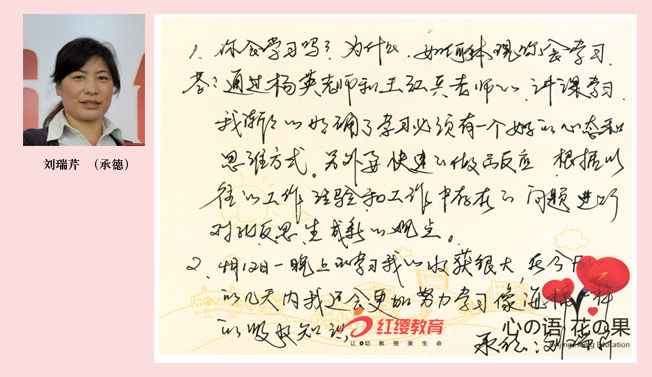 刘瑞芹 （承德）
1. 你会学习吗？为什么 如何体现你会学习.
答：通过杨英老师和王红兵老师的讲课学习.
我渐渐的明确了学习必须有一个好的心态和
思维方式。另外要快速的做出反应 根据以
往的工作经验和工作中存在的问题进行
对比反思生成新的观点。
2. 4月12日一晚上的学习我的收获很大 在今后
的几天内我还会更加努力学习像海棉一样
的吸收知识
红缨教育
让幼教赞美生命
心の语 花の果
承德：刘瑞芹